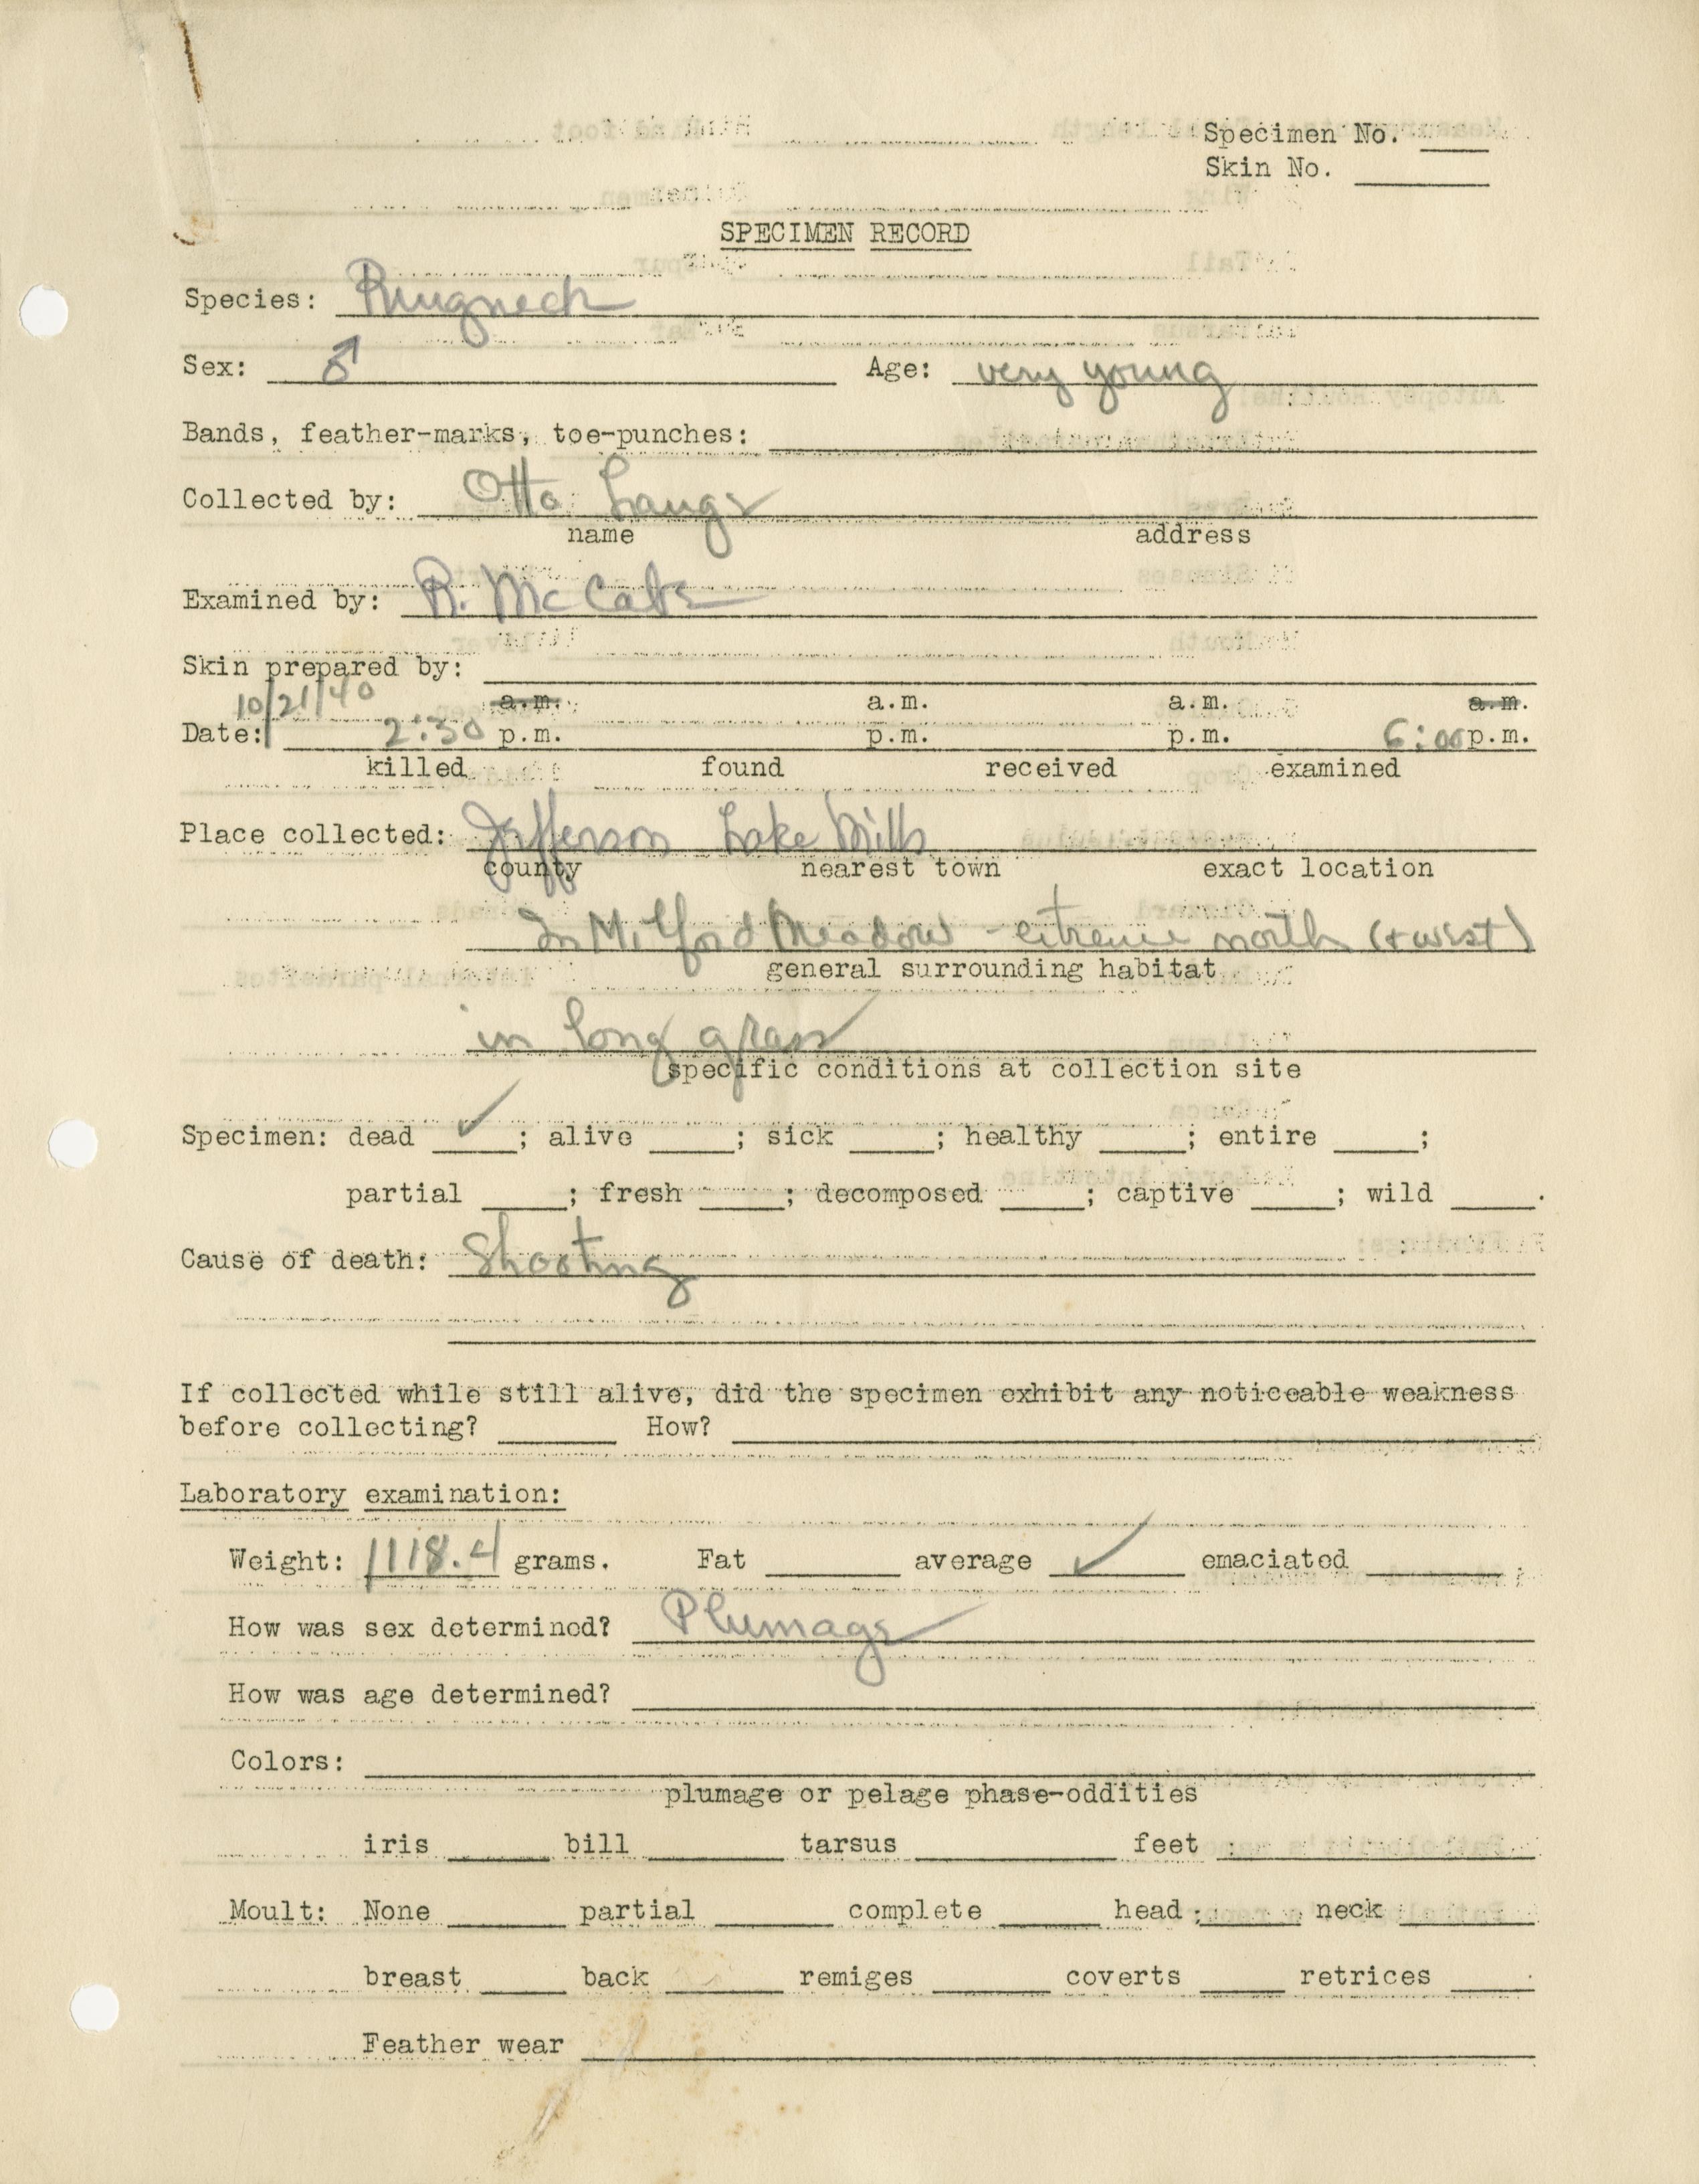 Specimen No. ____
Skin No. ____
SPECIMEN RECORD
Species: Ringneck
Sex: ♂ Age: very young
Bands, feather-marks, toe-punches:
Collected by: Otto Lange
name address
Examined by: R. McCabe
Skin prepared by:
10/21/40 a.m. a.m. a.m. a.m.
Date: 2:30 p.m. p.m. p.m. 6:00 p.m.
killed found received examined
Place collected: Jefferson Lake Mills
county nearest town exact location
In Milford Meadow - extreme north (+ west)
general surrounding habitat
in long grass
specific conditions at collection site
Specimen: dead ✓; alive ____; sick ____; healthy ____; entire ____;
partial ____; fresh ____; decomposed ____; captive ____; wild ____.
Cause of death: Shooting
If collected while still alive, did the specimen exhibit any noticeable weakness
before collecting? ____ How? ____
Laboratory examination:
Weight: 1118.4 grams. Fat ____ average ✓ emaciated ____;
How was sex determined? Plumage
How was age determined?
Colors:
plumage or pelage phase-oddities
iris ____ bill ____ tarsus ____ feet ____
Moult: None ____ partial ____ complete ____ head ____ neck ____
breast ____ back ____ remiges ____ coverts ____ retrices ____
Feather wear ____